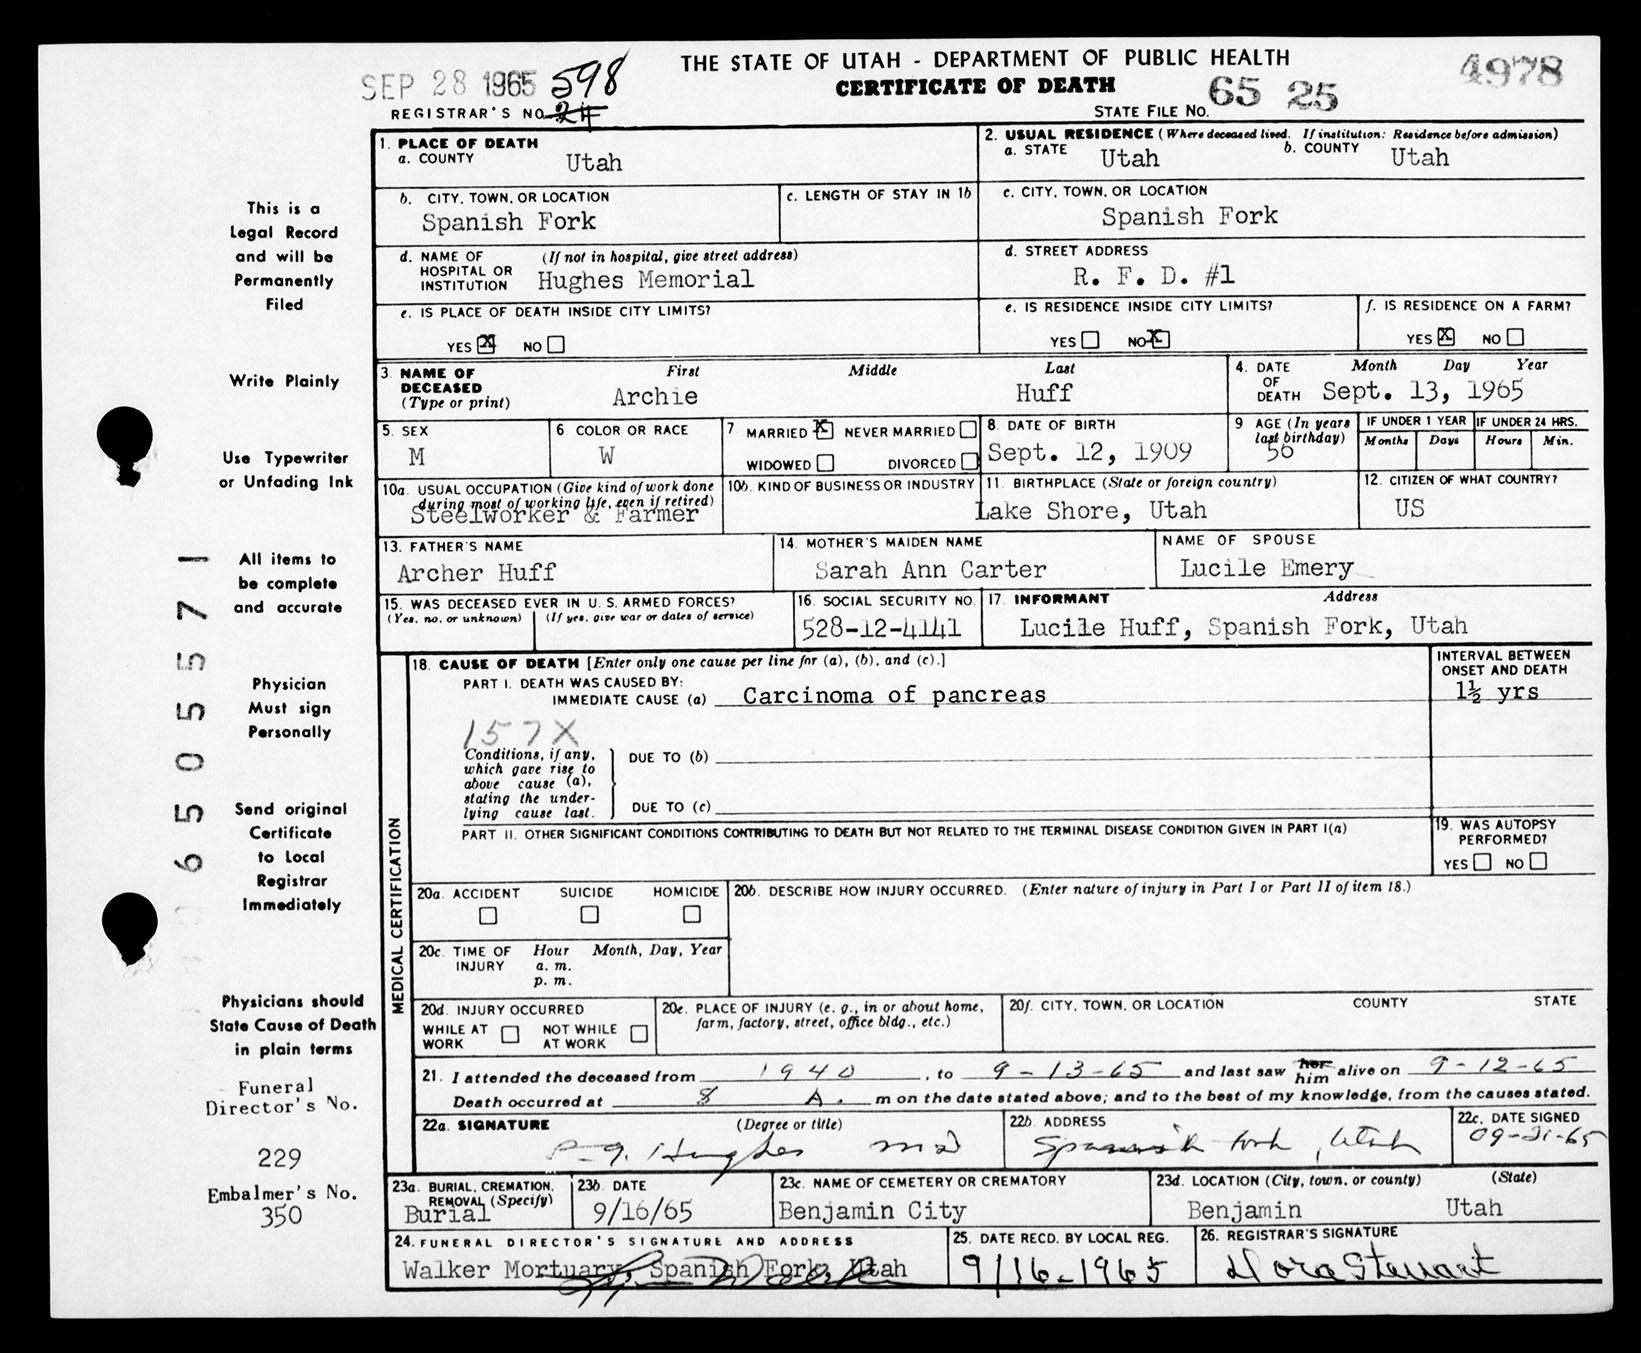 THE STATE OF UTAH - DEPARTMENT OF PUBLIC HEALTH
CERTIFICATE OF DEATH
SEP 28 1965 598
REGISTRAR'S NO. 24
STATE FILE NO. 65 25
4978
1. PLACE OF DEATH
a. COUNTY Utah
2. USUAL RESIDENCE (Where deceased lived. If institution: Residence before admission)
a. STATE Utah b. COUNTY Utah
b. CITY, TOWN, OR LOCATION
Spanish Fork
c. LENGTH OF STAY IN 1b
c. CITY, TOWN, OR LOCATION
Spanish Fork
d. NAME OF HOSPITAL OR INSTITUTION (If not in hospital, give street address)
Hughes Memorial
d. STREET ADDRESS
R. F. D. #1
e. IS PLACE OF DEATH INSIDE CITY LIMITS?
YES X NO
e. IS RESIDENCE INSIDE CITY LIMITS?
YES NO X
f. IS RESIDENCE ON A FARM?
YES X NO
3. NAME OF DECEASED (Type or print)
First Middle Last
Archie Huff
4. DATE OF DEATH Month Day Year
Sept. 13, 1965
5. SEX
M
6. COLOR OR RACE
W
7 MARRIED X NEVER MARRIED
WIDOWED DIVORCED
8. DATE OF BIRTH
Sept. 12, 1909
9 AGE (In years last birthday)
56
IF UNDER 1 YEAR
Months Days
IF UNDER 24 HRS.
Hours Min.
10a. USUAL OCCUPATION (Give kind of work done during most of working life, even if retired)
Steelworker & Farmer
10b. KIND OF BUSINESS OR INDUSTRY
11. BIRTHPLACE (State or foreign country)
Lake Shore, Utah
12. CITIZEN OF WHAT COUNTRY?
US
13. FATHER'S NAME
Archer Huff
14. MOTHER'S MAIDEN NAME
Sarah Ann Carter
NAME OF SPOUSE
Lucile Emery
15. WAS DECEASED EVER IN U. S. ARMED FORCES?
(Yes, no, or unknown) (If yes, give war or dates of service)
16. SOCIAL SECURITY NO.
528-12-4141
17. INFORMANT Address
Lucile Huff, Spanish Fork, Utah
MEDICAL CERTIFICATION
18. CAUSE OF DEATH [Enter only one cause per line for (a), (b), and (c).]
PART I. DEATH WAS CAUSED BY:
IMMEDIATE CAUSE (a) Carcinoma of pancreas
INTERVAL BETWEEN ONSET AND DEATH
1½ yrs
157X
Conditions, if any, which gave rise to above cause (a), stating the under-lying cause last.
DUE TO (b)
DUE TO (c)
PART II. OTHER SIGNIFICANT CONDITIONS CONTRIBUTING TO DEATH BUT NOT RELATED TO THE TERMINAL DISEASE CONDITION GIVEN IN PART I(a)
19. WAS AUTOPSY PERFORMED?
YES NO
20a. ACCIDENT SUICIDE HOMICIDE
20b. DESCRIBE HOW INJURY OCCURRED. (Enter nature of injury in Part I or Part II of item 18.)
20c. TIME OF INJURY Hour Month, Day, Year
a. m.
p. m.
20d. INJURY OCCURRED
WHILE AT WORK NOT WHILE AT WORK
20e. PLACE OF INJURY (e. g., in or about home, farm, factory, street, office bldg., etc.)
20f. CITY, TOWN, OR LOCATION COUNTY STATE
21. I attended the deceased from 1940, to 9-13-65 and last saw her him alive on 9-12-65
Death occurred at 8 A. m on the date stated above; and to the best of my knowledge, from the causes stated.
22a. SIGNATURE (Degree or title)
Hughes MD
22b. ADDRESS
Spanish Fork, Utah
22c. DATE SIGNED
09-21-65
23a. BURIAL, CREMATION, REMOVAL (Specify)
Burial
23b. DATE
9/16/65
23c. NAME OF CEMETERY OR CREMATORY
Benjamin City
23d. LOCATION (City, town, or county) (State)
Benjamin Utah
24. FUNERAL DIRECTOR'S SIGNATURE AND ADDRESS
Walker Mortuary, Spanish Fork, Utah
25. DATE RECD. BY LOCAL REG.
9/16-1965
26. REGISTRAR'S SIGNATURE
Nora Stewart
This is a
Legal Record
and will be
Permanently
Filed
Write Plainly
Use Typewriter
or Unfading Ink
All items to
be complete
and accurate
Physician
Must sign
Personally
Send original
Certificate
to Local
Registrar
Immediately
Physicians should
State Cause of Death
in plain terms
Funeral
Director's No.
229
Embalmer's No.
350
6505571